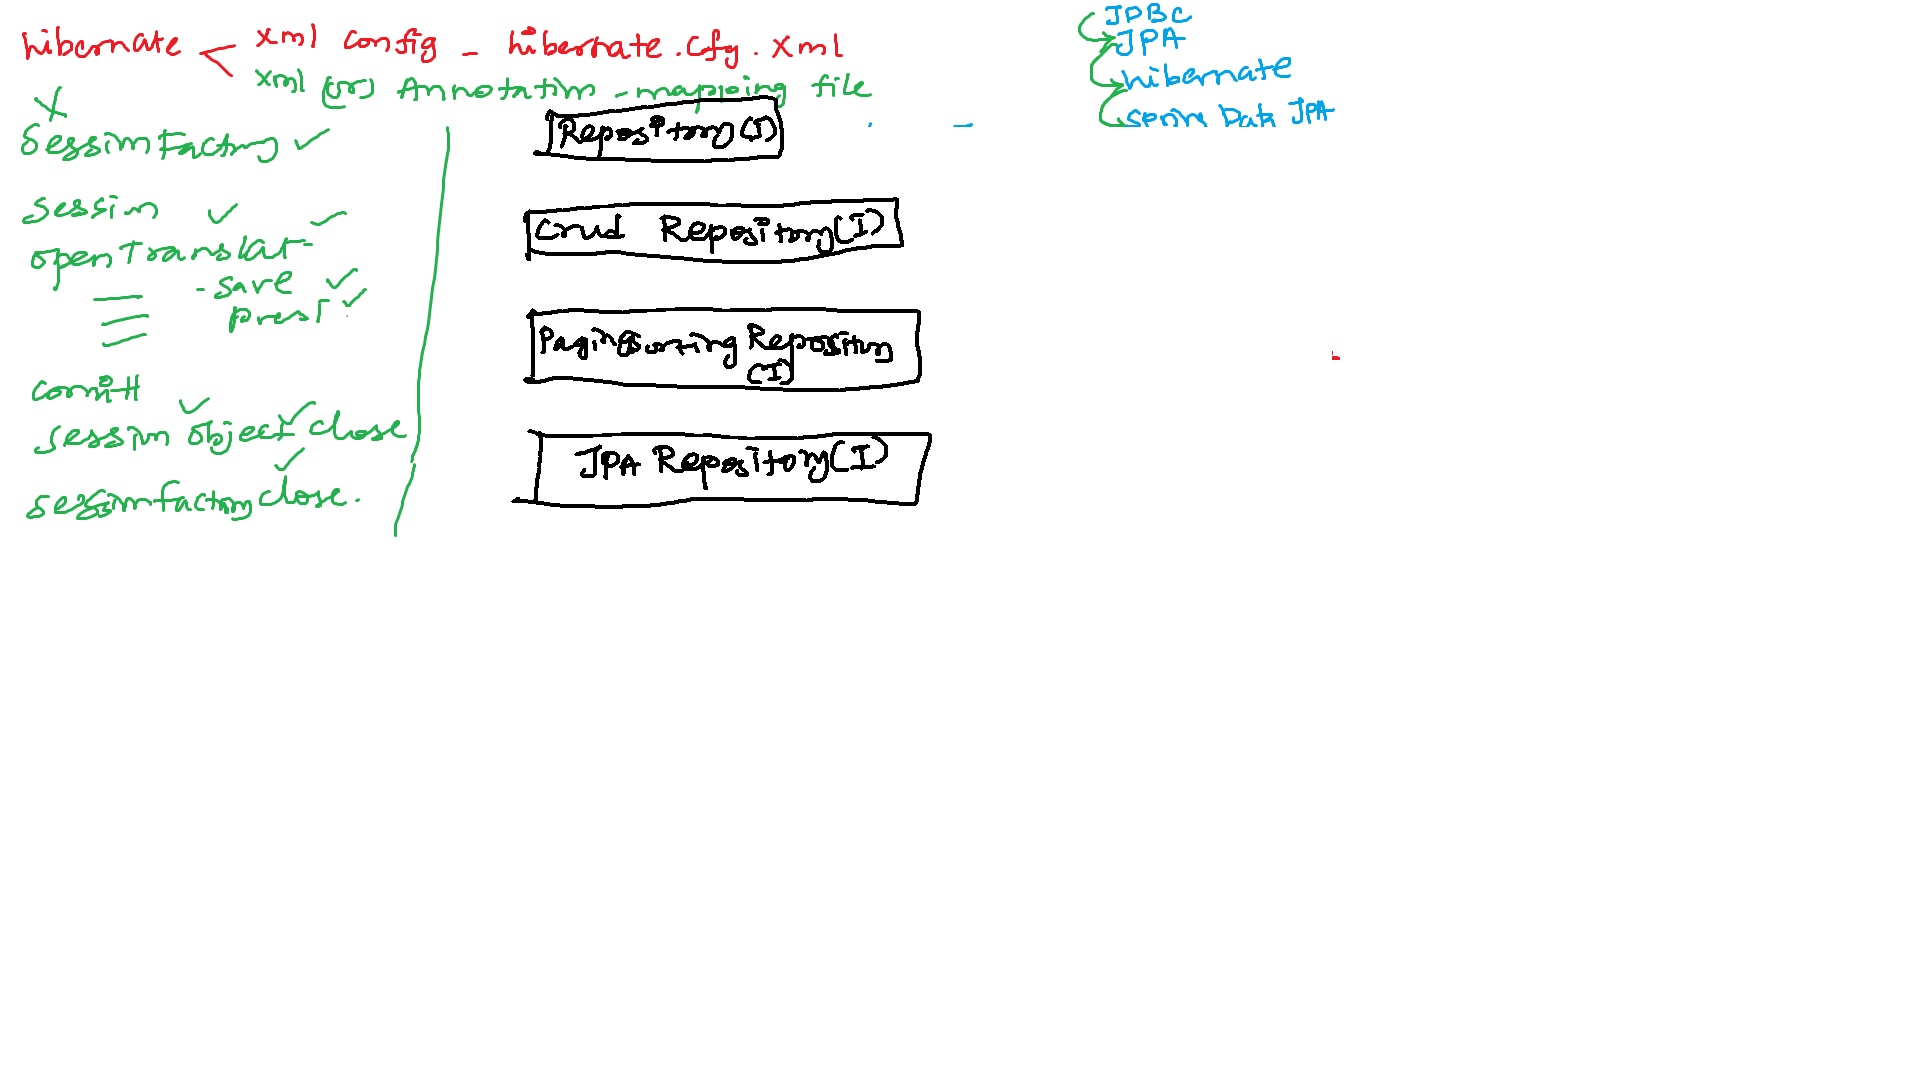 hibernate
xml config - hibernate.cfg.xml
xml (or) Annotation - mapping file
X
SessionFactory ✓
session ✓
openTranslat- ✓
- save ✓
comitt
session object close
sessionfactory close.
Repository(I)
Crud Repository(I)
Paging&sorting Repository
(I)
JPA Repository(I)
JDBC
JPA
hibernate
Spring Data JPA